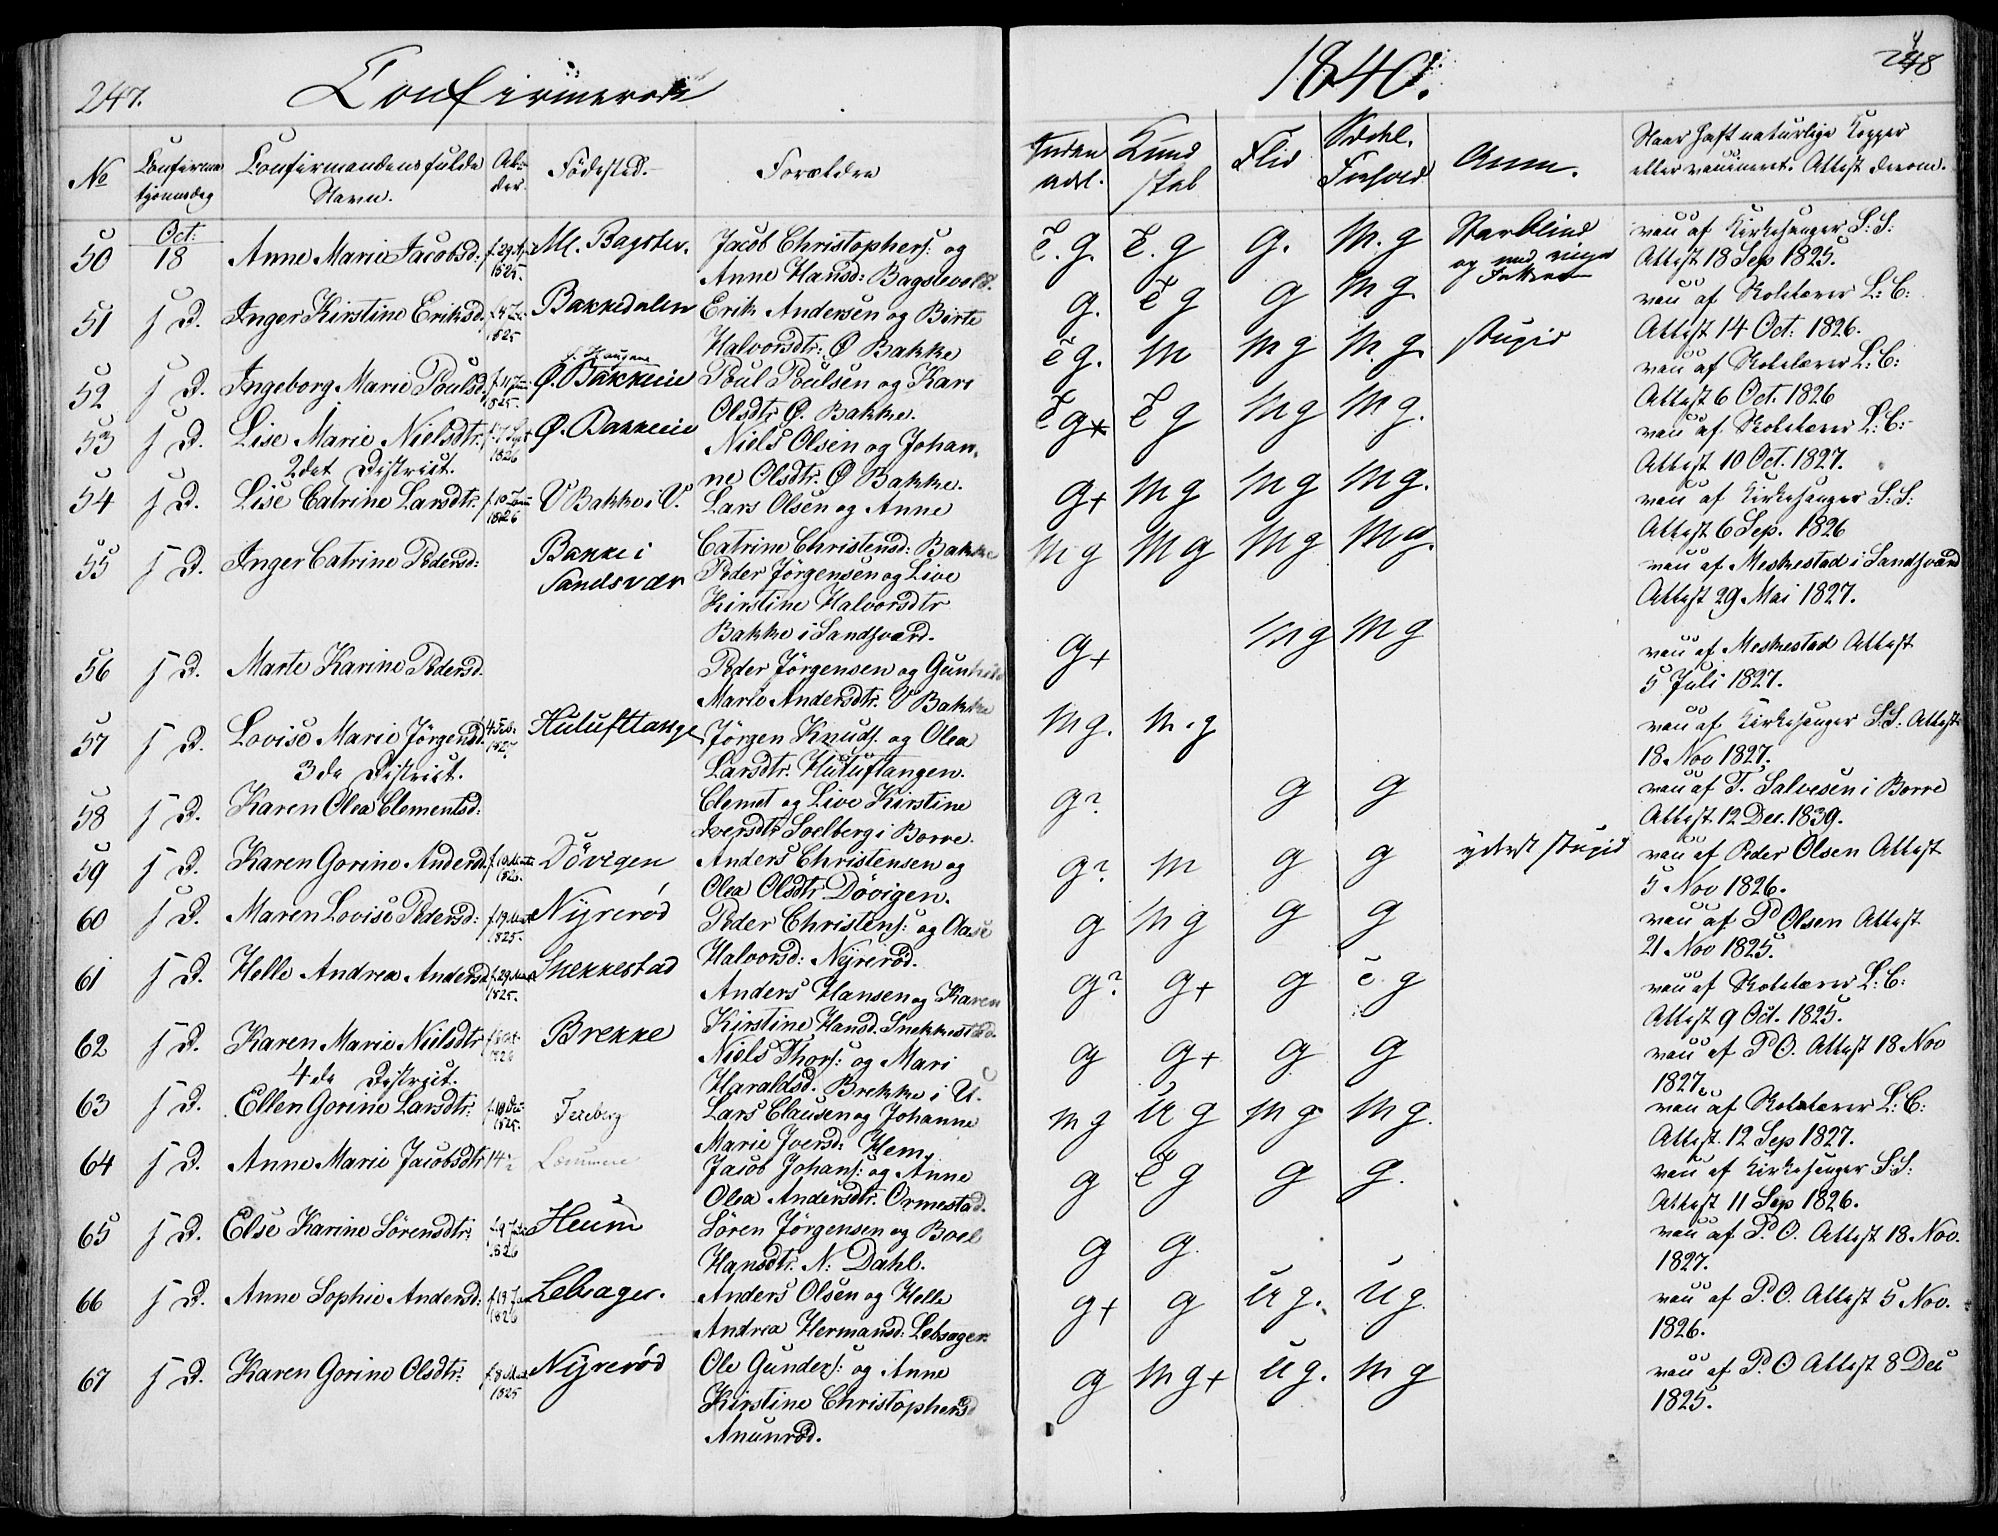 247.
Confirmerede
1840.
248
No
Confirma-
tjonnsdag
Confirmandens fulde
Navn.
Al-
der.
Fødested.
Forældre
Kund
skab
Flid
Sædel.
Forhold
Anm.
Naar haft naturlige Kopper
eller vaccineret. Attest derom.
50
Oct:
18
Anne Marie Jacobsd:
1825.
Jacob Christophers: og
Anne Hansd: Bagstevold.
ẽ. g.
ẽ. g
g.
m. g
Starblind
og med
vacc af Kirkesanger S. S:
Attest 18 Sep 1825.
51
s D.
Inger Kirstine Eriksd.
1825
Bakkedalen
Erik Andersen og Birte
Halvorsdtr: Ø Bakke
g.
ẽ g
g
m g.
vacc af Skolelærer L: C:
Attest 14 Oct: 1826.
52
s D.
Ingeborg Marie Poulsd.
1825.
f. Haugene
Ø. Bakkene
Poul Poulsen og Kari
Olsdtr Ø. Bakke.
ẽ g.
m
m g
m g.
stupid
vacc af Skolelærer L: C:
Attest 6 Oct. 1826
53
s D.
Lise Marie Nielsdtr.
1826
Ø. Bakkene
Niels Olsen og Johan-
ne Olsdtr. Ø Bakke.
ẽ g+
ẽ g
m g
m g.
vacc af Skolelærer L: C:
Attest 10 Oct. 1827.
2det District.
54
s D.
Lise Catrine Larsdtr.
1826
V Bakke i V.
Lars Olsen og Anne
Catrine Christensd: Bakke
g+
m g
m g
m g.
vacc af Kirkesanger S: S:
Attest 6 Sep. 1826
55
s D.
Inger Catrine Pedersd:
Bakke i
Sandsvær
Peder Jörgensen og Live
Kirstine Halvorsdtr
Bakke i Sandsværd.
m g
m g
m g
m g.
vacc af Meskestad i Sandsværd
Attest 29 Mai 1827.
56
s D.
Marte Karine Pedersd.
Peder Jörgensen og Gunhild
Marie Andersdtr. V Bakke
g+
m g
m g
vacc af Meskestad Attest
5 Juli 1827.
57
s D.
Lovise Marie Jörgensd.
4 Feb.
1827.
Huluftange
Jörgen Knuds. og Olea
Larsdtr. Huluftangen.
m g.
m. g
vacc af Kirkesanger S.S. Attest
18 Nov 1827.
3de District.
58
s D.
Karen Olea Clementsd:
Clemet og Live Kirstine
Iversdtr Soelberg i Borre.
g?
g
g
vacc af T. Salvesen i Borre
Attest 12 Dec. 1839.
59
s D.
Karen Gorine Andersd.
Dövigen
Anders Christensen og
Olea Olsdtr Dövigen.
g?
m
g
g
yderst stupid
vacc af Peder Olsen Attest
5 Nov 1826.
60
s D.
Maren Lovise Pedersd:
1825.
Nyrerød
Peder Christens: og Aase
Halvorsd: Nyrerød.
g
m g
g
g
vacc af P Olsen Attest
21 Nov 1825.
61
s D.
Helle Andrea Andersd.
1825.
Snekkestad
Anders Hansen og Karen
Kirstine Hansd. Snekkestad.
g?
g+
g
ẽ. g
vacc af Skolelærer L: C:
Attest 9 Oct. 1825.
62
s D.
Karen Marie Nielsdtr
1826
Brekke
Niels Thors: og Mari
Haraldsd. Brekke i U.
g
g+
g
g
vacc af P O. Attest 18 Nov
1827.
4de District.
63
s D.
Ellen Gorine Larsdtr.
1825.
Lars Clausen og Johanne
Marie Iversd: Hem.
m g
u g
m g
m g.
vacc af Skolelærer L: C:
Attest. 12 Sep 1827.
64
s D.
Anne Marie Jacobsdtr
Jacob Johans: og Anne
Olea Andersdtr. Ormestad.
g
ẽ g
g
g.
vacc af Kirkesanger S: S:
Attest 11 Sep 1826.
65
s D.
Else Karine Sörensdtr:
1826
Heum
Sören Jörgensen og Boel
Hansdtr. N: Dahl.
g
g.
vacc af P. O. Attest 18 Nov.
1827.
66
s D.
Anne Sophie Andersd:
1826
Lebsager.
Anders Olsen og Helle
Andrea Hermansd: Lebsager.
g+
g
u g.
u g.
vacc af P. O. Attest 5 Nov.
1826.
67
s D.
Karen Gorine Olsdtr:
1825
Nyrerød
Ole Gunders: og Anne
Kirstine Christophersd
Anunrød.
g
m g+
u g.
m g
vacc af P. O Attest 8 Dec
1825.